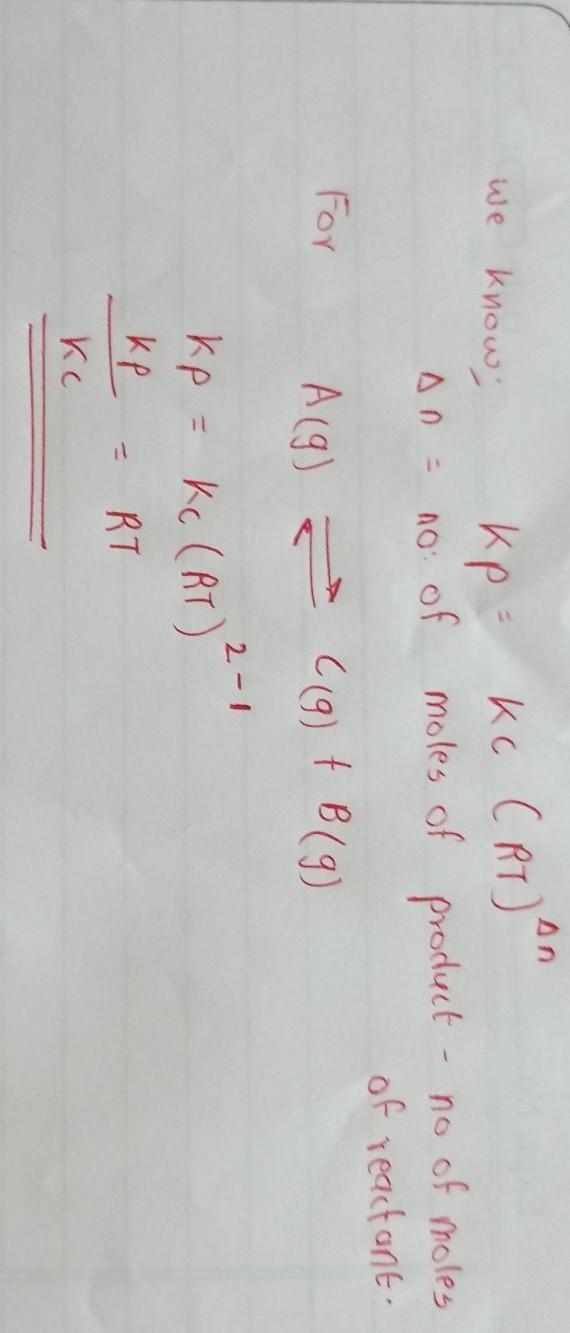 We know: Kp = Kc (RT)^Δn
Δn = no: of moles of product - no of moles
of reactant.
For A(g) ⇌ C(g) + B(g)
Kp = Kc (RT)^2-1
Kp/Kc = RT